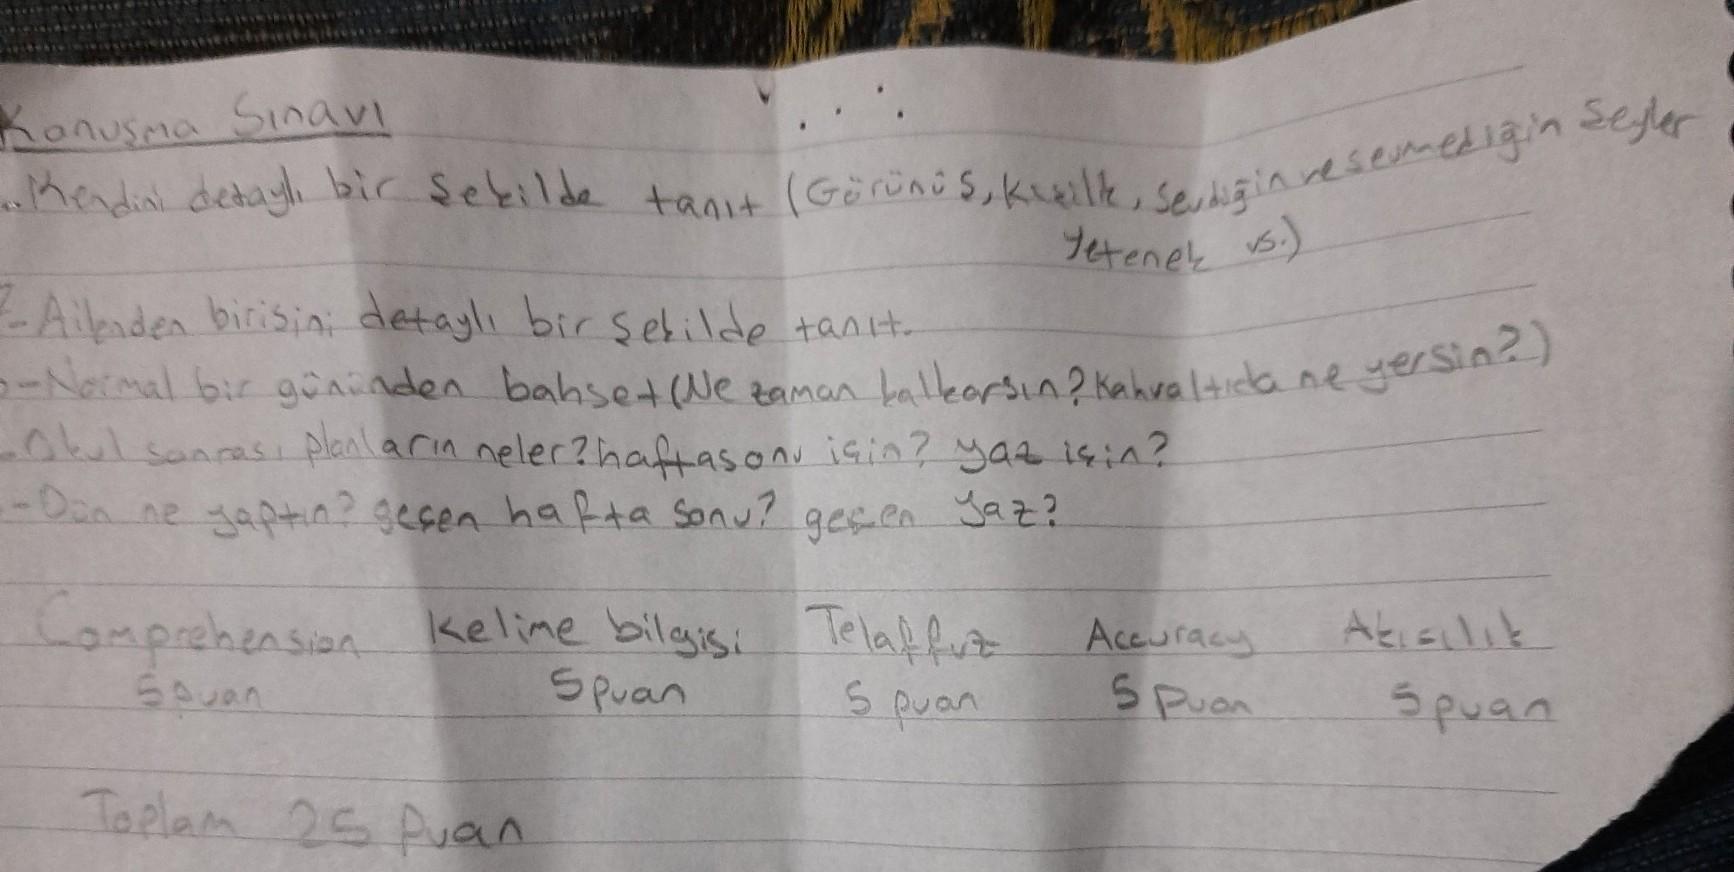 Konusma Sınavı
Kendini detaylı bir Sekilde tanıt (Görünüs, Kisilik, Sevdiğin ve sevmediğin Seyler
Yetenek vs.)
2-Ailenden birisini detaylı bir Sekilde tanıt.
-Normal bir gününden bahset (Ne zaman kalkarsın? Kahvaltıda ne yersin?)
-Okul sonrası planların neler? haftasonu için? yaz için?
-Dün ne yaptın? geçen hafta sonu? geçen Yaz?
Comprehension Kelime bilgisi Telaffuz Accuracy Akıcılık
5 puan 5 puan 5 puan 5 Puan 5 puan
Toplam 25 Puan